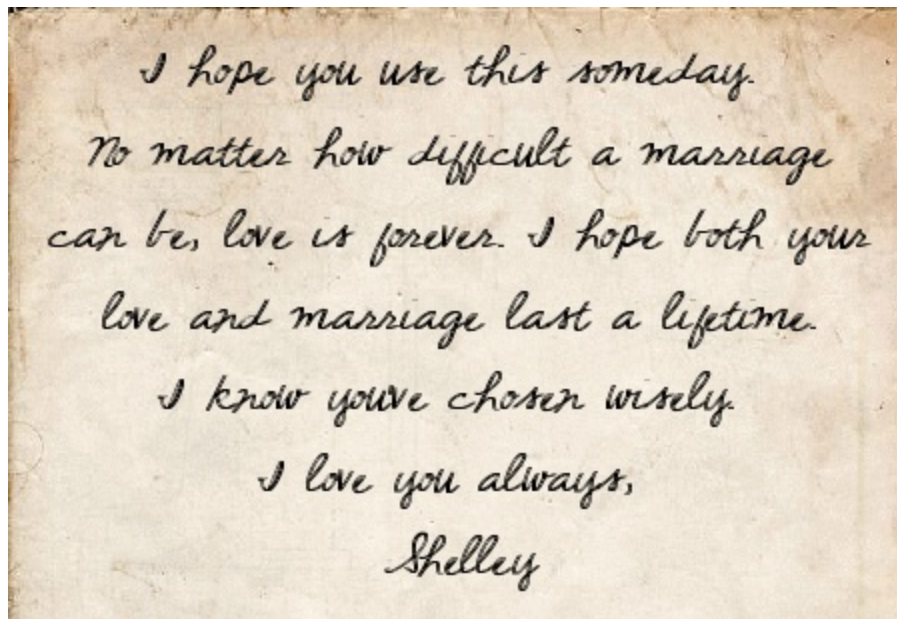 I hope you use this someday.
No matter how difficult a marriage
can be, love is forever. I hope both your
love and marriage last a lifetime.
I know you've chosen wisely.
I love you always,
Shelley